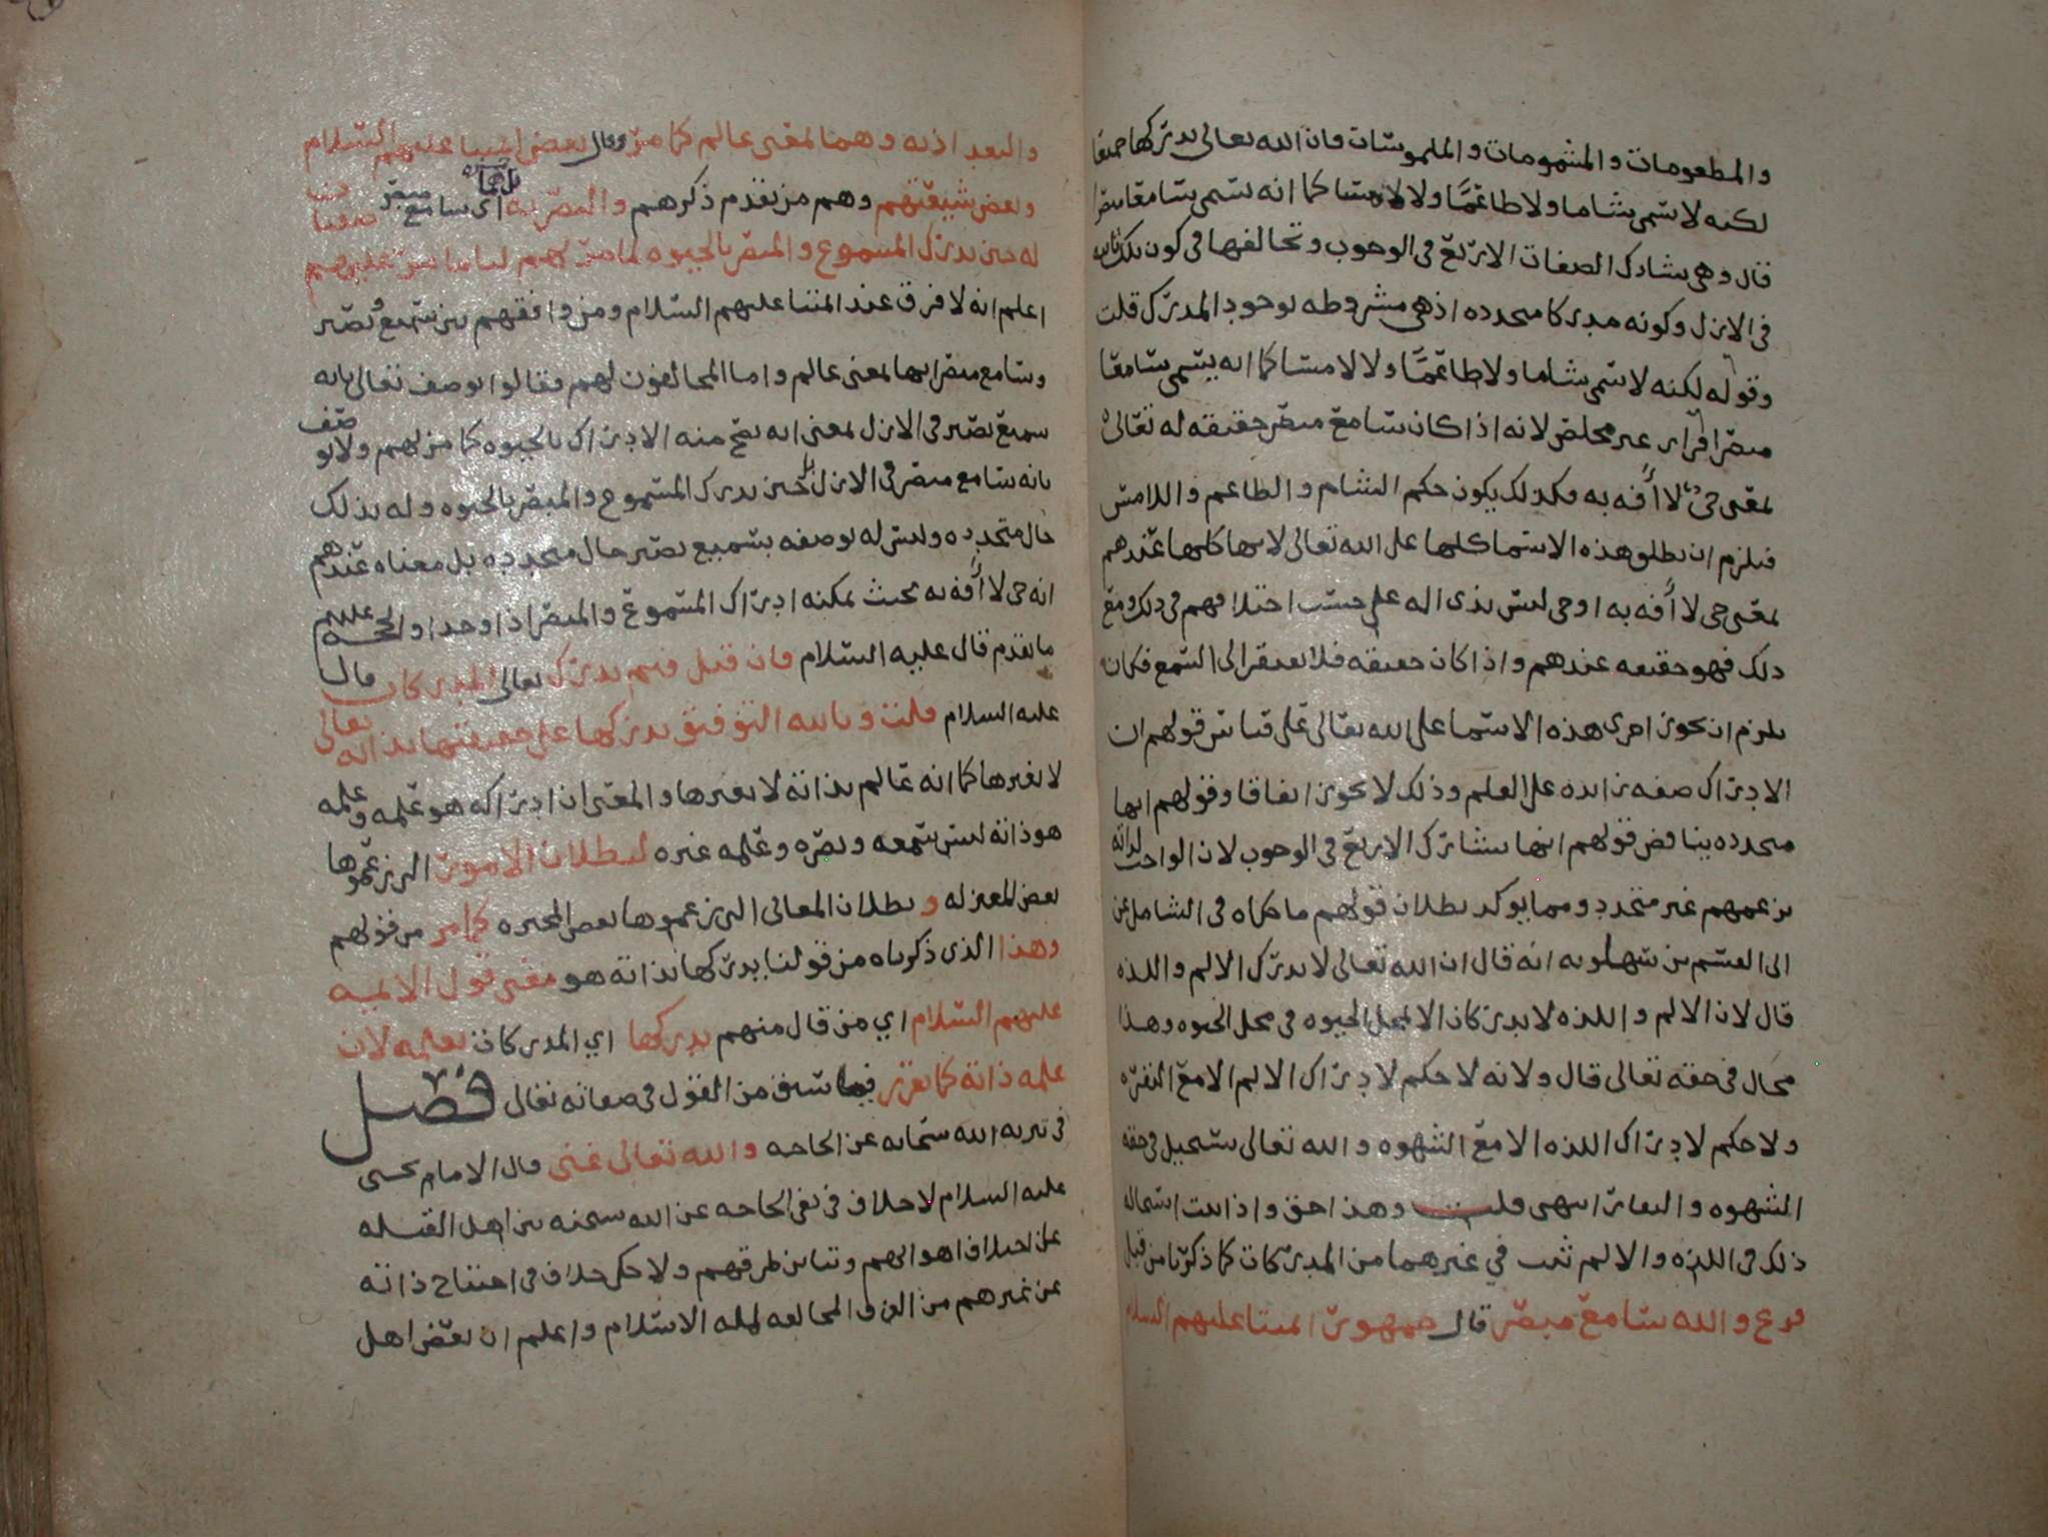 والمطعومات والمشمومات والملموسات فان الله تعالى يدركها جميعا
لكنه لا يسمى شاما ولا طاعما ولا لامسا كما انه يسمى سامعا مبصرا
قال وهي تشارك الصفات الاربع في الوجوب وتخالفها في كون تلك ثابته
في الازل وكونه مدركا متجدده اذ هي مشروطه بوجود المدرك قلت
وقوله لكنه لا يسمى شاما ولا طاعما ولا لامسا كما انه يسمى سامعا
مبصرا فرار غير مخلص لانه اذا كان سامع مبصر حقيقه له تعالى
بمعنى حي لا آفه به فكذلك يكون حكم الشام والطاعم واللامس
فيلزم ان يطلق هذه الاسما كلها على الله تعالى لانها كلها عندهم
بمعنى حي لا آفه به او حي ليس بذي اله على حسب اختلافهم في ذلك ومع
ذلك فهو حقيقه عندهم واذا كان حقيقه فلا يفتقر الى السمع فكان
يلزم ان يجوز اجرى هذه الاسما على الله تعالى على قياس قولهم ان
الادراك صفه زايده على العلم وذلك لا يجوز اتفاقا وقولهم انها
متجدده يناقض قولهم انها تشارك الاربع في الوجوب لان الواجب لذاته
بزعمهم غير متجدد ومما يوكد بطلان قولهم ما حكاه في الشامل عن
ابي القسم بن سهلويه انه قال ان الله تعالى لا يدرك الالم واللذه
قال لان الالم واللذه لا يدركان الا بمحل الحيوه في محل الحيوه وهذا
محال في حقه تعالى قال ولانه لا حكم لادراك الالم الا مع النفره
ولا حكم لادراك اللذه الا مع الشهوه والله تعالى يستحيل في حقه
الشهوه والنفار انتهى قلت وهذا حق واذا ثبت استحاله
ذلك في اللذه والالم ثبت في غيرهما من المدركات كما ذكرنا من قبل
فرع والله سامع مبصر قال جمهور ايمتنا عليهم السلام
والبغداديه وهما بمعنى عالم كما مر وقال بعض ايمتنا عليهم السلام
وبعض شيعتهم وهم من تقدم ذكرهم والبصريه اي سامع مبصر
له حين يدرك المسموع والمبصر بالحيوه لما مر لهم لنا ما مر عليهم
اعلم انه لا فرق عند ايمتنا عليهم السلام ومن وافقهم بين سميع وبصير
وسامع مبصر انها بمعنى عالم واما المخالفون لهم فقالوا يوصف تعالى بانه
سميع بصير في الازل بمعنى انه يصح منه الادراك بالحيوه كما مر لهم ولا يوصف
بانه سامع مبصر في الازل بل حين يدرك المسموع والمبصر بالحيوه وله بذلك
حال متجدده وليس له بوصفه بسميع بصير حال متجدده بل معناه عندهم
انه حي لا آفه به بحيث يمكنه ادراك المسموع والمبصر اذا وجدا والحجه عليهم
ما تقدم قال عليه السلام فان قيل فبم يدرك تعالى المدركات قال
عليه السلام قلت وبالله التوفيق يدركها على حقيقتها بذاته تعالى
لا بغيرها كما انه عالم بذاته لا بغيرها والمعنى ان ادراكه هو علمه وعلمه
هو ذاته ليس سمعه وبصره وعلمه غيره لبطلان الامور التي زعموها
بعض المعتزله و بطلان المعاني التي زعموها بعض المجبره كما مر من قولهم
وهذا الذي ذكرناه من قولنا يدركها بذاته هو معنى قول الايمه
عليهم السلام اي من قال منهم يدركها اي المدركات بعلمه لان
علمه ذاته كما تقرر فيما سبق من القول في صفاته تعالى فصل
في تنزيه الله سبحانه عن الحاجه والله تعالى غني قال الامام يحيى
عليه السلام لا خلاف في نفي الحاجه عن الله سبحنه بين اهل القبله
على اختلاف اهوائهم وتباين طرقهم ولا حكي خلاف في احتياج ذاته
عن غيرهم من الفرق المخالفه لمله الاسلام واعلم ان بعض اهل